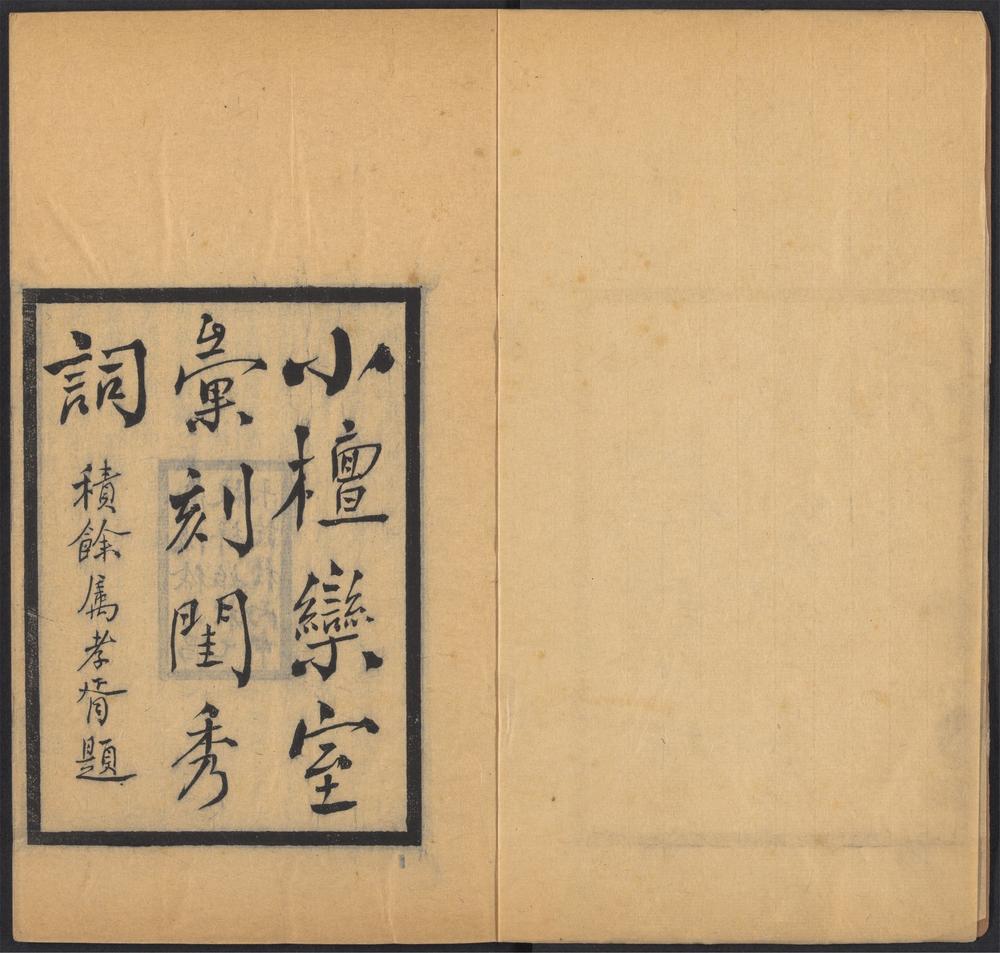 小檀欒室
彙刻閨秀
詞
積餘属孝胥題